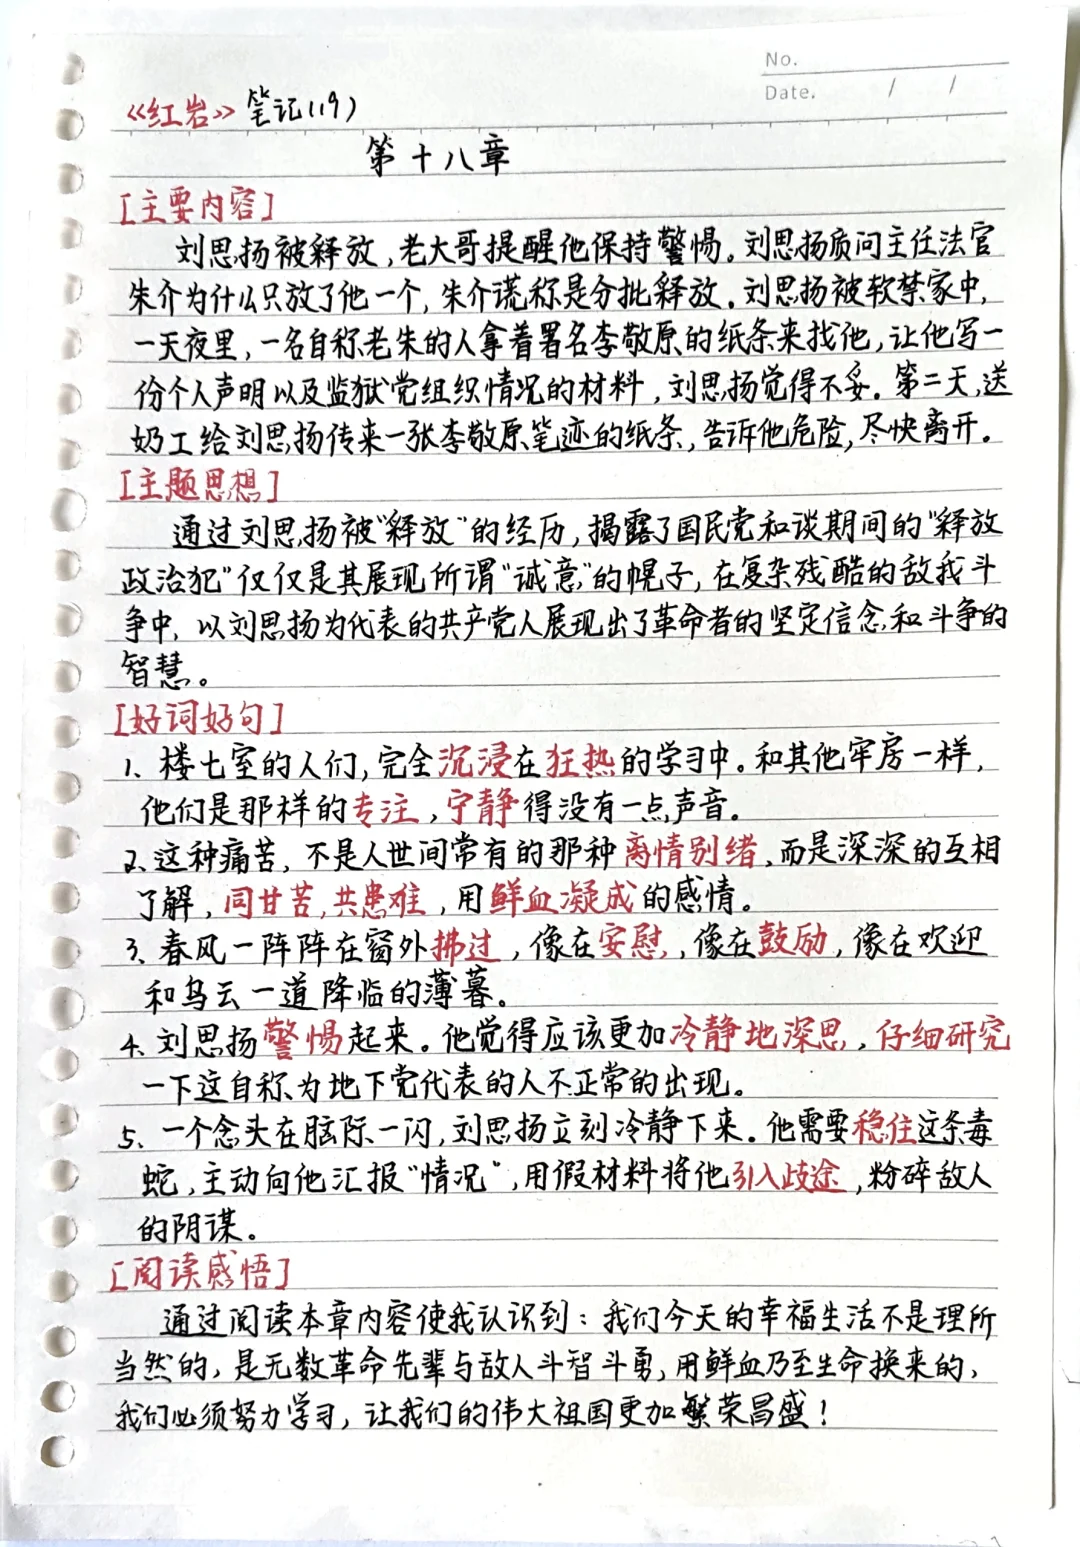 No.
Date. / /
《红岩》笔记(19)
第十八章
[主要内容]
刘思扬被释放，老大哥提醒他保持警惕。刘思扬质问主任法官
朱介为什么只放了他一个，朱介谎称是分批释放。刘思扬被软禁家中，
一天夜里，一名自称老朱的人拿着署名李敬原的纸条来找他，让他写一
份个人声明以及监狱党组织情况的材料，刘思扬觉得不妥。第二天，送
奶工给刘思扬传来一张李敬原笔迹的纸条，告诉他危险，尽快离开。
[主题思想]
通过刘思扬被“释放”的经历，揭露了国民党和谈期间的“释放
政治犯”仅仅是其展现所谓“诚意”的幌子，在复杂残酷的敌我斗
争中，以刘思扬为代表的共产党人展现出了革命者的坚定信念和斗争的
智慧。
[好词好句]
1、楼七室的人们，完全沉浸在狂热的学习中。和其他牢房一样，
他们是那样的专注，宁静得没有一点声音。
2、这种痛苦，不是人世间常有的那种离情别绪，而是深深的互相
了解，同甘苦，共患难，用鲜血凝成的感情。
3、春风一阵阵在窗外拂过，像在安慰，像在鼓励，像在欢迎
和乌云一道降临的薄暮。
4、刘思扬警惕起来。他觉得应该更加冷静地深思，仔细研究
一下这自称为地下党代表的人不正常的出现。
5、一个念头在脑际一闪，刘思扬立刻冷静下来。他需要稳住这条毒
蛇，主动向他汇报“情况”，用假材料将他引入歧途，粉碎敌人
的阴谋。
[阅读感悟]
通过阅读本章内容使我认识到：我们今天的幸福生活不是理所
当然的，是无数革命先辈与敌人斗智斗勇，用鲜血乃至生命换来的，
我们必须努力学习，让我们的伟大祖国更加繁荣昌盛！